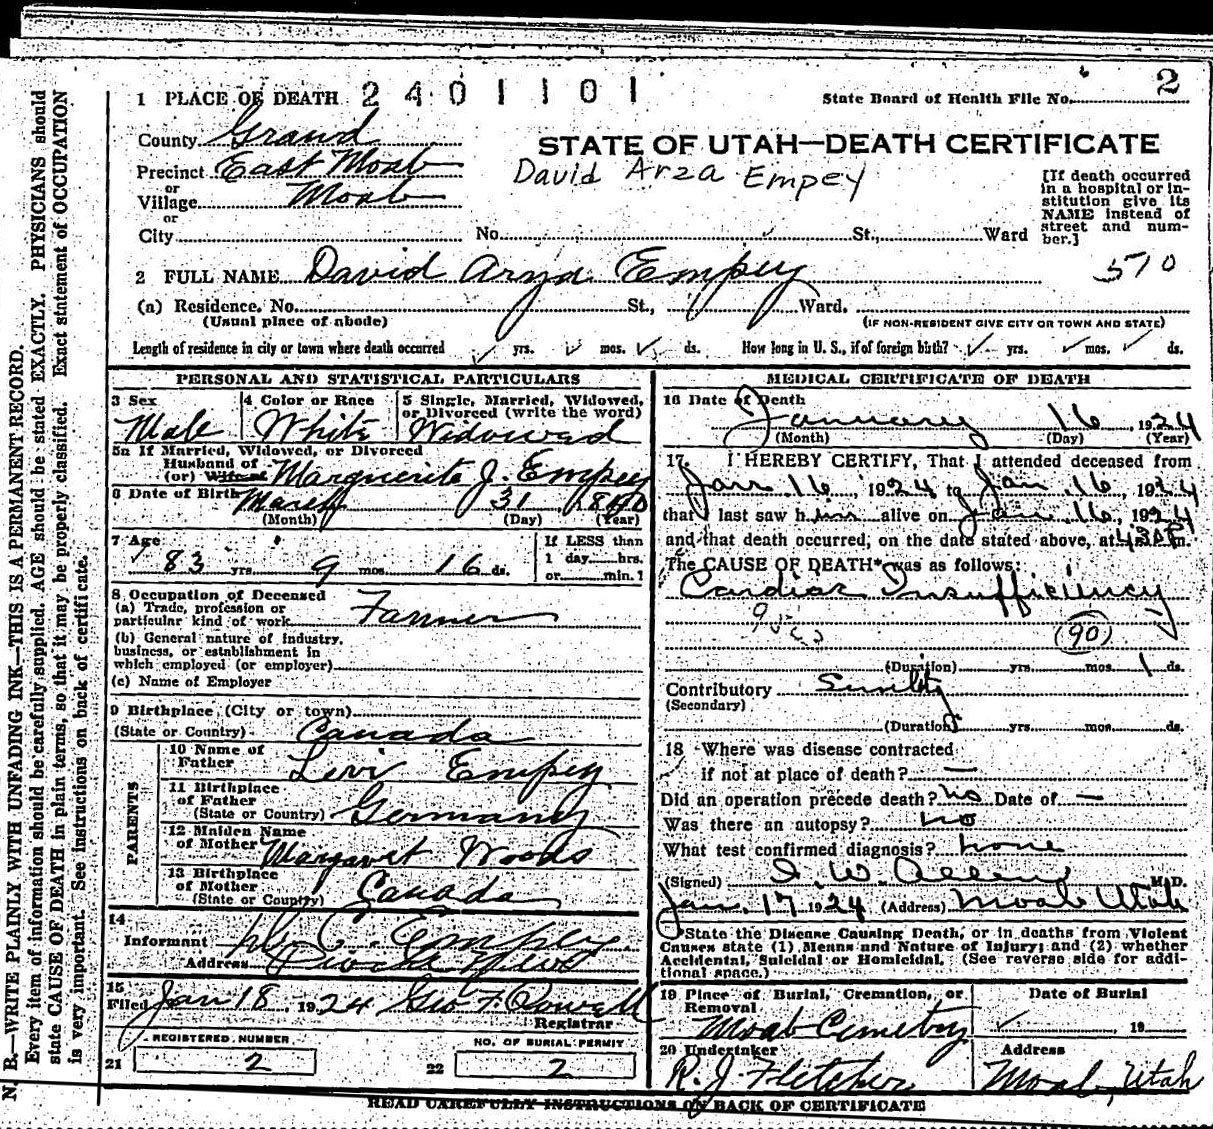 1 PLACE OF DEATH 2 4 0 1 1 0 1
State Board of Health File No. 2
County Grand
STATE OF UTAH—DEATH CERTIFICATE
Precinct East Moab
David Arza Empey
or
Village Moab
or
City No. St., Ward
[If death occurred
in a hospital or in-
stitution give its
NAME instead of
street and num-
ber.]
2 FULL NAME David Arza Empey
510
(a) Residence. No. St., Ward.
(Usual place of abode)
(IF NON-RESIDENT GIVE CITY OR TOWN AND STATE)
Length of residence in city or town where death occurred yrs. mos. ds. How long in U. S., if of foreign birth? yrs. mos. ds.
PERSONAL AND STATISTICAL PARTICULARS
3 Sex
Male
4 Color or Race
White
5 Single, Married, Widowed,
or Divorced (write the word)
Widowed
5a If Married, Widowed, or Divorced
Husband of
(or) Wife of Marguerite J. Empey
6 Date of Birth March 31 1840
(Month) (Day) (Year)
7 Age
83 yrs 9 mos 16 ds.
If LESS than
1 day hrs.
or min.?
8 Occupation of Deceased
(a) Trade, profession or
particular kind of work Farmer
(b) General nature of industry,
business, or establishment in
which employed (or employer)
(c) Name of Employer
9 Birthplace (City or town)
(State or Country) Canada
PARENTS
10 Name of
Father Levi Empey
11 Birthplace
of Father
(State or Country) Germany
12 Maiden Name
of Mother Margaret Woods
13 Birthplace
of Mother
(State or Country) Canada
14
Informant Empey
Address
15
Filed Jan 18, 1924 Geo F. Powell
Registrar
REGISTERED NUMBER
21 2
NO. OF BURIAL PERMIT
22 2
MEDICAL CERTIFICATE OF DEATH
16 Date of Death
January 16, 1924
(Month) (Day) (Year)
17 I HEREBY CERTIFY, That I attended deceased from
Jan. 16, 1924 to Jan. 16, 1924
that I last saw him alive on Jan. 16, 1924
and that death occurred, on the date stated above, at 4:30 P. m.
The CAUSE OF DEATH* was as follows:
Cardiac Insufficiency
(90)
(Duration) yrs. mos. 1 ds.
Contributory Senility
(Secondary)
(Duration) yrs. mos. ds.
18 Where was disease contracted
if not at place of death? —
Did an operation precede death? no Date of —
Was there an autopsy? no
What test confirmed diagnosis? none
(Signed) I. W. Allen M. D.
Jan. 17 1924 (Address) Moab Utah
*State the Disease Causing Death, or in deaths from Violent
Causes state (1) Means and Nature of Injury; and (2) whether
Accidental, Suicidal or Homicidal. (See reverse side for addi-
tional space.)
19 Place of Burial, Cremation, or
Removal
Moab Cemetery
Date of Burial
, 19
20 Undertaker
R. J. Fletcher
Address
Moab, Utah
READ CAREFULLY INSTRUCTIONS ON BACK OF CERTIFICATE
N. B.—WRITE PLAINLY WITH UNFADING INK—THIS IS A PERMANENT RECORD.
Every item of information should be carefully supplied. AGE should be stated EXACTLY. PHYSICIANS should
state CAUSE OF DEATH in plain terms, so that it may be properly classified. Exact statement of OCCUPATION
is very important. See instructions on back of certificate.